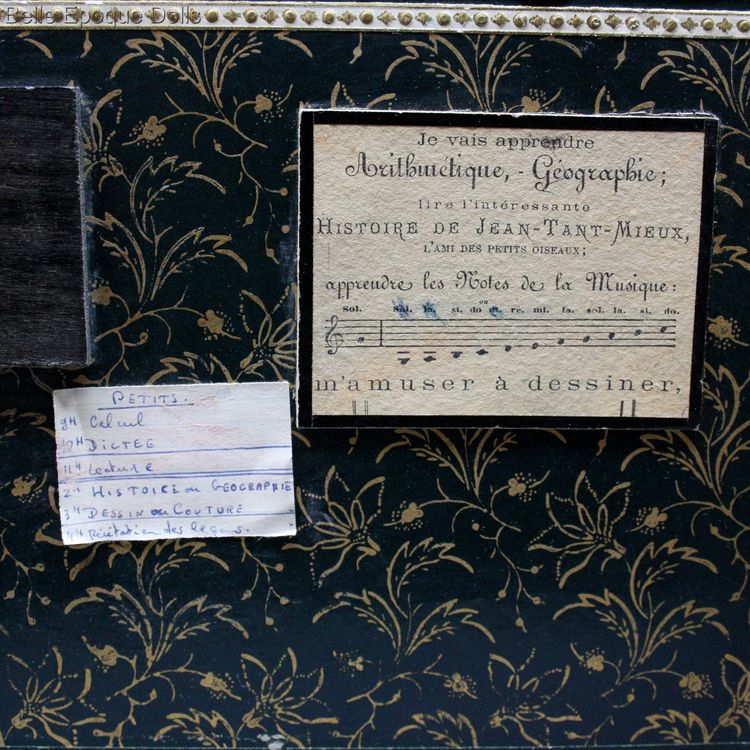 Belle Epoque Dolls
Je vais apprendre
Arithmétique, - Géographie;
lire l'intéressante
HISTOIRE DE JEAN-TANT-MIEUX,
L'AMI DES PETITS OISEAUX;
apprendre les Notes de la Musique:
ou
Sol. Sol. la. si. do re. mi. fa. sol. la. si. do.
m'amuser à dessiner,
PETITS.
9H Calcul
10H DICTEE
11H Lecture
2H HISTOIRE ou GEOGRAPHIE
3H DESSIN ou COUTURE
4H Récitation des leçons.